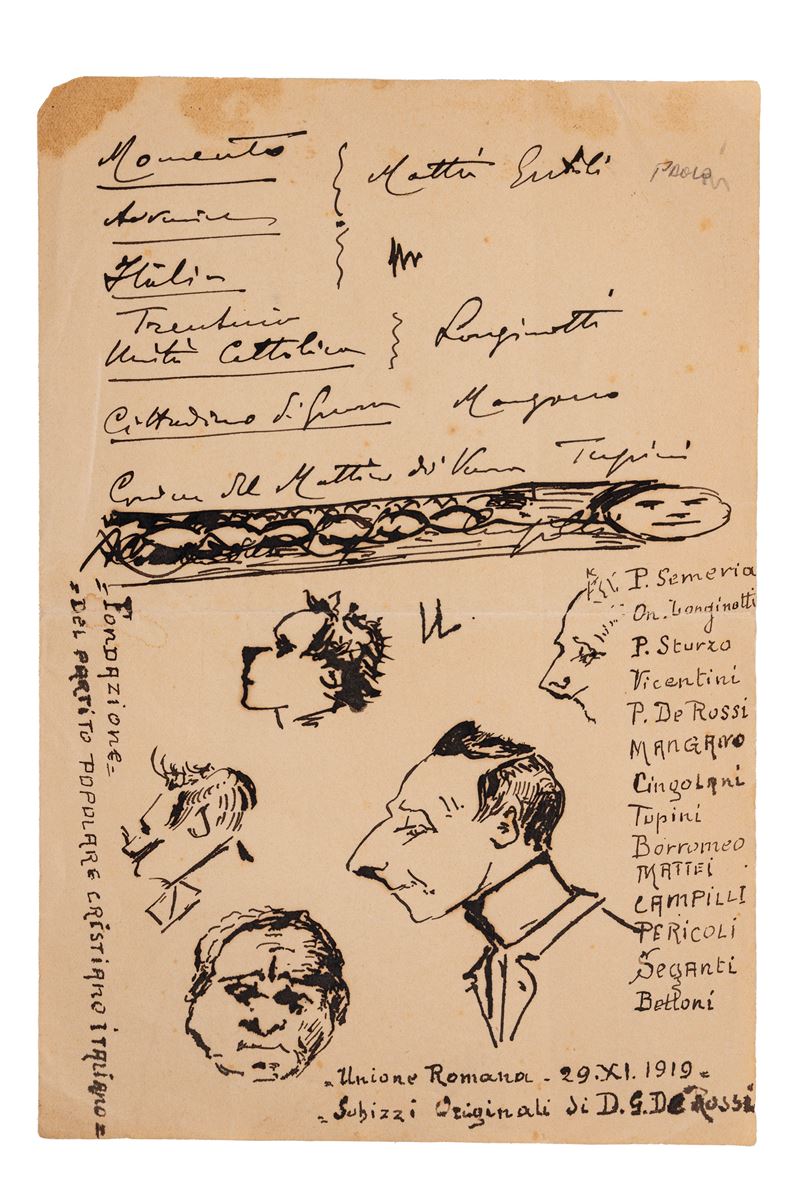 Momento
Mattei Gentili
Avvenire
Italia
Trentino
Unità Cattolica
Longinotti
Cittadino di Genova
Mangano
Corriere del Mattino di Verona Tupini
= Fondazione =
= DEL PARTITO POPOLARE CRISTIANO ITALIANO =
P. Semeria
On. Longinotti
P. Sturzo
Vicentini
P. De Rossi
MANGANO
Cingolani
Tupini
Borromeo
MATTEI
CAMPILLI
PERICOLI
Seganti
Bettoni
= Unione Romana - 29.XI.1919 =
= Schizzi Originali di D. G. De Rossi